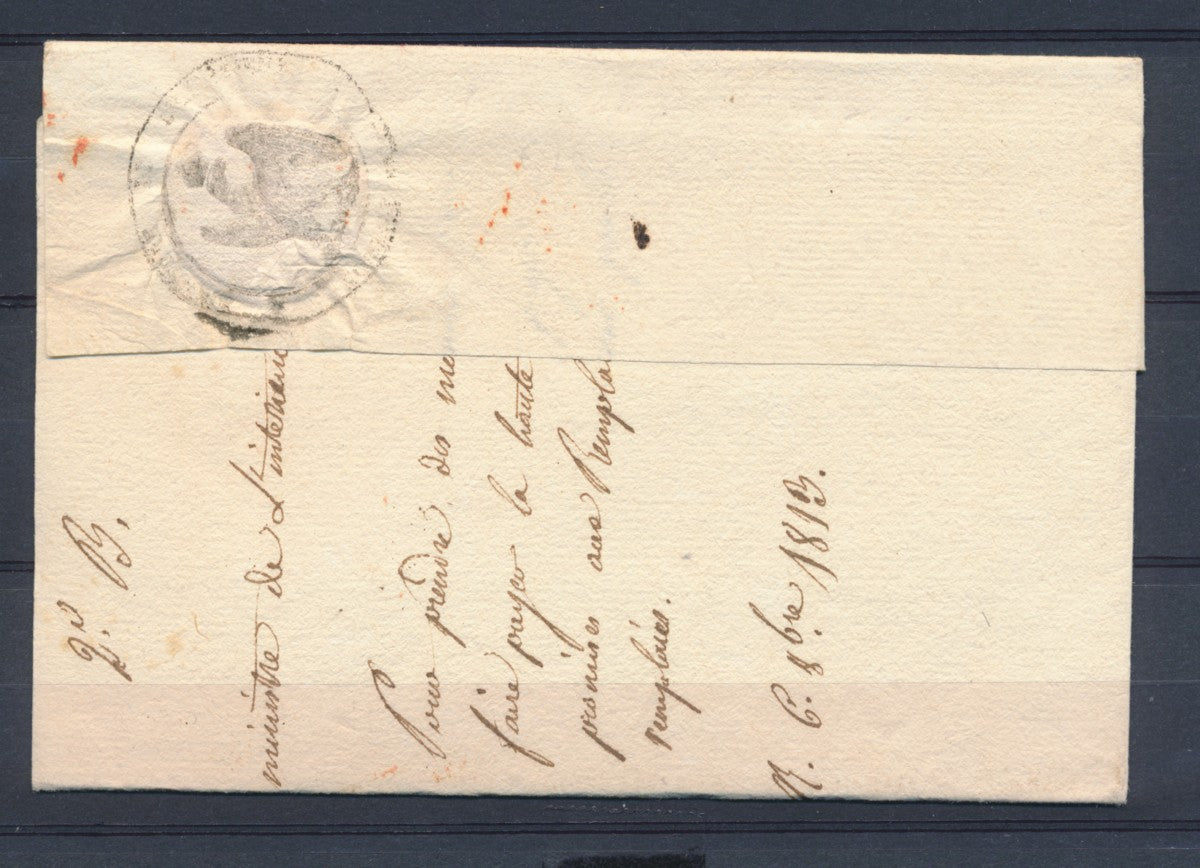 2.e B.
ministre de L'interieur
Pour prendre des me
faire payer la haute
promises aux Rempla
remplacés.
R. 6. 8bre 1813.